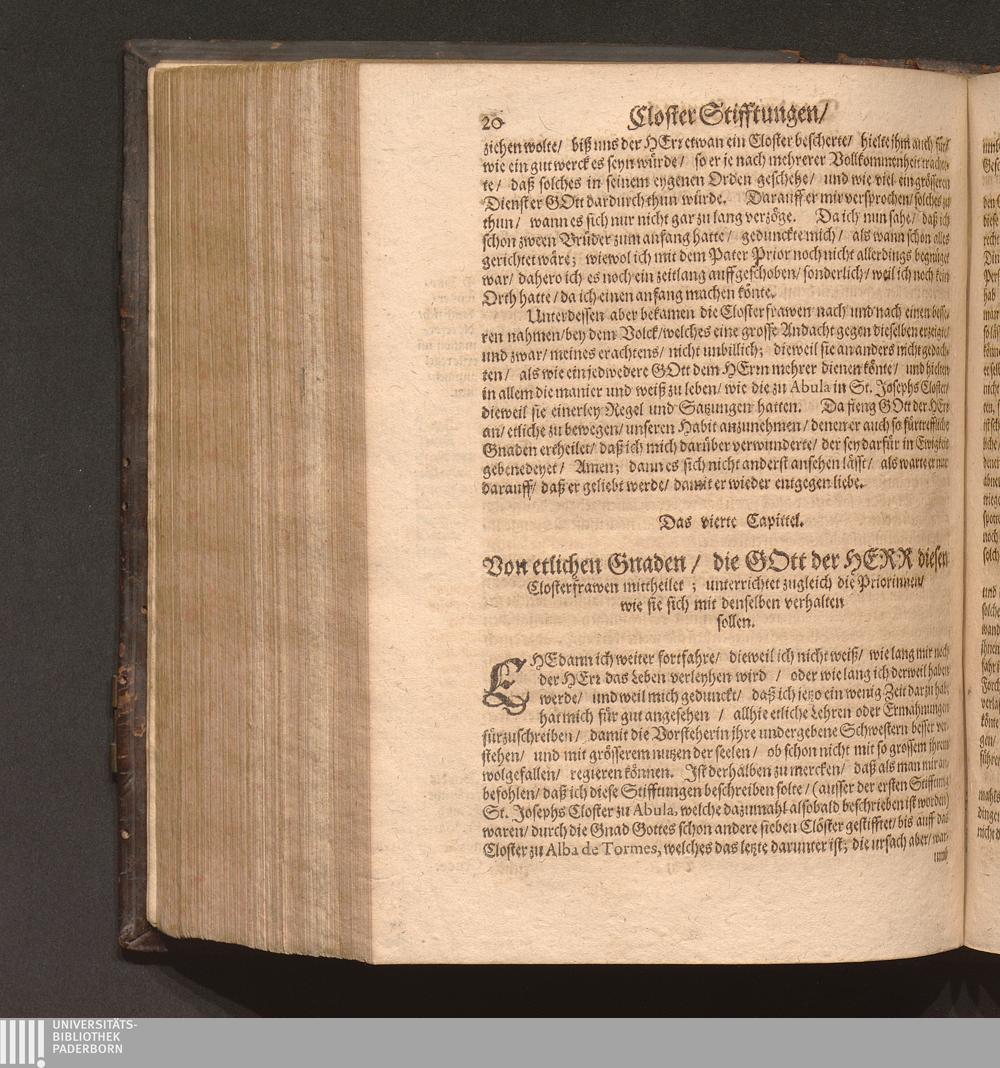 20 Closter Stifftungen/
ziehen wolte/ biß uns der HErr etwan ein Closter bescherte/ hielte ihm auch für/
wie ein gut werck es seyn würde/ so er je nach mehrerer Vollkommenheit trachte-
te/ daß solches in seinem eygenen Orden geschehe/ und wie viel ein grösseren
Dienst er GOtt dardurch thun würde. Darauff er mir versprochen/ solches zu
thun/ wann es sich nur nicht gar zu lang verzöge. Da ich nun sahe/ daß ich
schon zween Brüder zum anfang hatte/ gedunckte mich/ als wann schon alles
gerichtet wäre; wiewol ich mit dem Pater Prior noch nicht allerdings begnüget
war/ dahero ich es noch ein zeitlang auffgeschoben/ sonderlich/ weil ich noch kein
Orth hatte/ da ich einen anfang machen könte.
Unterdessen aber bekamen die Closterfrawen nach und nach einen besse-
ren nahmen/ bey dem Volck/ welches eine grosse Andacht gegen dieselben erzeigte/
und zwar/ meines erachtens/ nicht unbillich; dieweil sie an anders nicht gedach-
ten/ als wie ein jedwedere GOtt dem HErrn mehrer dienen könte/ und hielten
in allem die manier und weiß zu leben/ wie die zu Abula in St. Josephs Closter/
dieweil sie einerley Regel und Satzungen hatten. Da fieng GOtt der HErr
an/ etliche zu bewegen/ unseren Habit anzunehmen/ denen er auch so fürtreffliche
Gnaden ertheilet/ daß ich mich darüber verwunderte/ der sey darfür in Ewigkeit
gebenedeyet/ Amen; dann es sich nicht anderst ansehen lässt/ als warte er nur
darauff/ daß er geliebt werde/ damit er wieder entgegen liebe.
Das vierte Capittel.
Von etlichen Gnaden/ die GOtt der HERR diesen
Closterfrawen mittheilet; unterrichtet zugleich die Priorinnen/
wie sie sich mit denselben verhalten
sollen.
EHE dann ich weiter fortfahre/ dieweil ich nicht weiß/ wie lang mir noch
der HErr das Leben verleyhen wird/ oder wie lang ich derweil haben
werde/ und weil mich gedunckt/ daß ich jetzo ein wenig Zeit darzu habe
hat mich für gut angesehen/ allhie etliche Lehren oder Ermahnungen
fürzuschreiben/ damit die Vorsteherin ihre undergebene Schwestern besser ver-
stehen/ und mit grösserem nutzen der seelen/ ob schon nicht mit so grossem ihrem
wolgefallen/ regieren können. Ist derhalben zu mercken/ daß als man mir an-
befohlen/ daß ich diese Stifftungen beschreiben solte/ (ausser der ersten Stifftung
St. Josephs Closter zu Abula, welche dazumahl alsobald beschrieben ist worden)
waren/ durch die Gnad Gottes schon andere sieben Clöster gestifftet/ bis auff das
Closter zu Alba de Tormes, welches das letzte darunter ist; die ursach aber/ war-
umb
UNIVERSITÄTS-
BIBLIOTHEK
PADERBORN